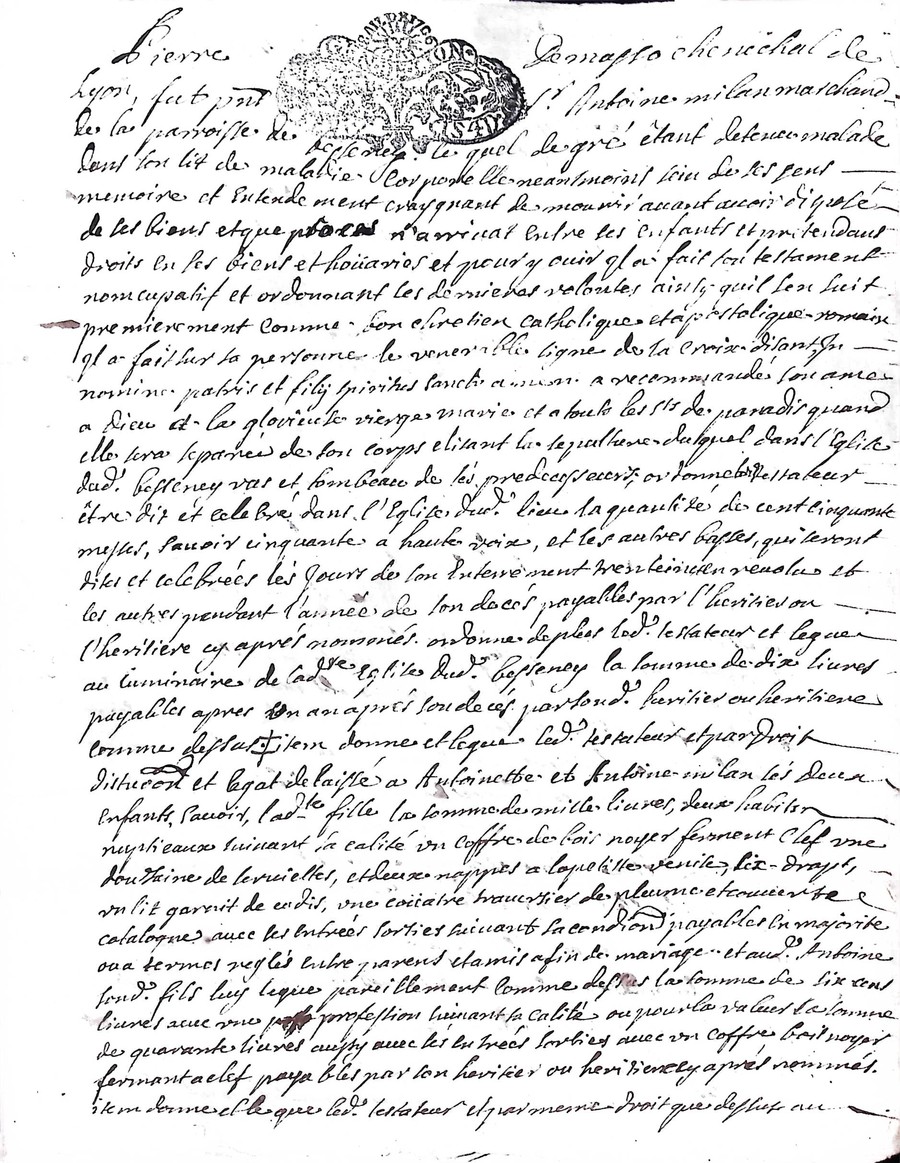 Pierre Demasso cheneschal de
Lyon, fut pnt Sr. Antoine milan marchand
de la parroisse de besseney. le quel de gré étant detenu malade
dans son lit de maladie Corporelle neantmoins sein de ses sens
memoire et Entendement craygnant de mourir auant auoir disposé
de ses biens et que proces n'arriuat entre ses enfants et pretendants
droits en ses biens et hoiaries et pour y ouir yl a fait son testament
noncupatif et ordonnant ses dernieres volontes ainsy quil sen suit
premierement comme bon chretien catholique et apostolique romain
yl a fait sur sa personne le venerable signe de la Croix disant, In
nomine patris et filij spiritus sancti amen a recommandé son ame
a Dieu et la glorieuse vierge marie et a touts les sts de paradis quand
elle sera separée de son corps elisant la sepulture duquel dans l'Eglise
dud. besseney vas et tombeau de sés predecesseurs, ordonne led testateur
être dit et celebré dans l'Eglise dud. lieu la quantité de cent cinquante
messes, sauoir cinquante a haute voix, et les autres basses, qui seront
dites et celebrées lés Jours de son Enterrement trentein en reuolu et
les autres pendant l'année de son decés payables par l'heritier ou
l'heritiere cy aprés nommés. ordonne de plus led. testateur et legue
au luminaire de ladte Eglise dud. besseney la somme de dix liures
payables apres un an aprés son decés par sond. heritier ou heritiere
comme dessus. item donne et legue led. testateur et par Droit
distiucon et legat delaissé a Antoinette et Antoine milan sés deux
enfants, sauoir, ladte fille la somme de mille liures, deux habits
nuptieaux suiuant sa calité un coffre de bois noyer ferment Clef une
douzaine de seruietes, et deux nappes a la petitte venise, six drapt,
un lit garnit de cadis, une coicatre trauersier de plume et couuerte
catalogne auec ses entrées sorties suiuant sa condion payables en majorité
ou a termes reglés entre parens et amis afin de mariage et aud. Antoine
sond. fils luy legue pareillement comme dessus la somme de six cens
liures auec une profession suiuant sa calité ou pour la valeur la somme
de quarante liures aussy auec lés entrées sorties auec un coffre bois noyer
fermant a clef payables par son heritier ou heritiere cy aprés nommés.
item donne et legue led. testateur et par meme droit que dessus au